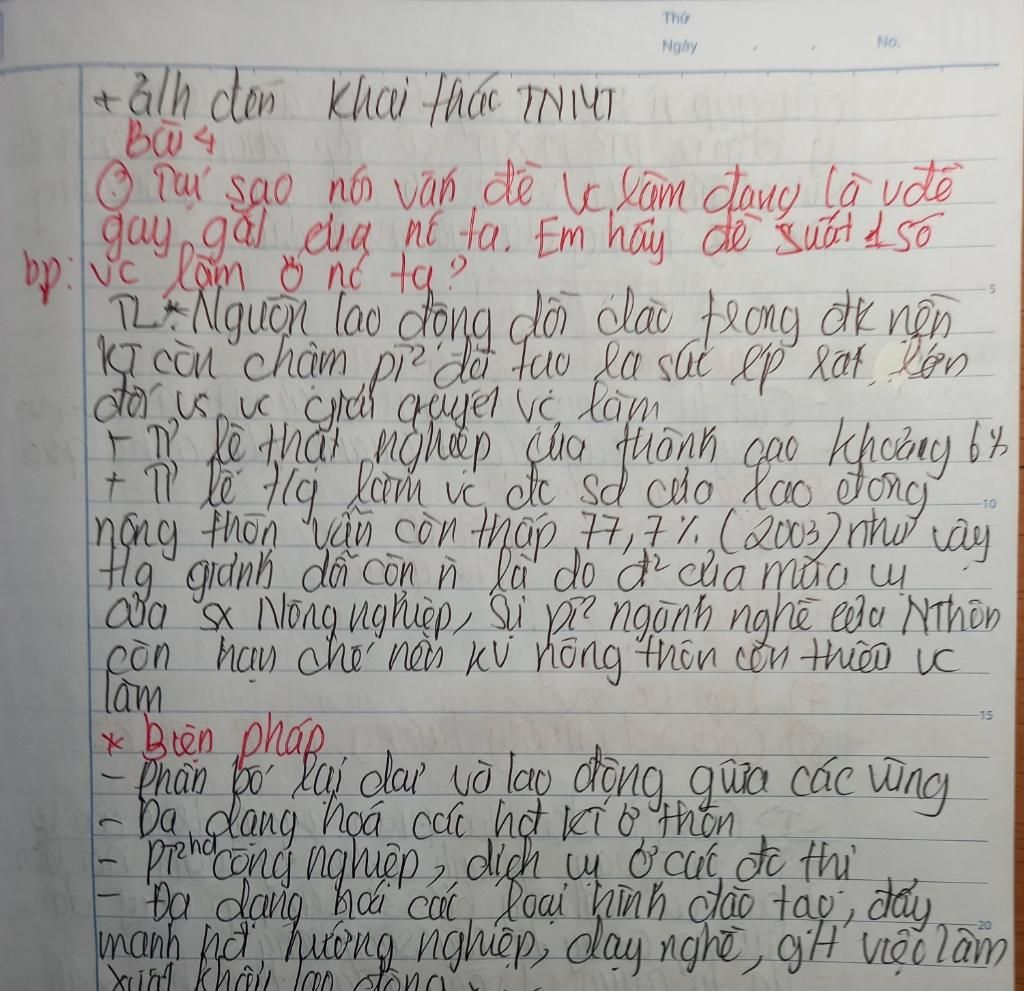 Thứ
Ngày . . No.
+ ảlh đến khai thác TNMT
Bài 4
? Tại sao nói vấn đề vc làm đang là vđề
gay gắt của nc ta. Em hãy đề suất 1 số
bp: vc làm ở nc ta?
TL * Nguồn lao động dồi dào trong đk nền
KT còn chậm pt² đã tạo ra sức ép rất lớn
đối vs vc giải quyết vc làm
+ Tỉ lệ thất nghiệp của thành cao khoảng 6%
+ Tỉ lệ t/g làm vc đc sd của lao động
nông thôn vẫn còn thấp 77,7% (2003) như vậy
t/g rảnh dỗi còn n là do đ² của mùa vụ
của sx Nông nghiệp, sự pt² ngành nghề của NThôn
còn hạn chế nên KV nông thôn còn thiếu vc
làm
* Biện pháp
- Phân bố lại dân và lao động giữa các vùng
- Đa dạng hoá các hđ KT ở thôn
- Pt² hđ công nghiệp, dịch vụ ở các đc thị
- Đa dạng hoá các loại hình đào tạo, đẩy
mạnh hđ hướng nghiệp, dạy nghề, gth việc làm
xuất khẩu lao động
5
10
15
20